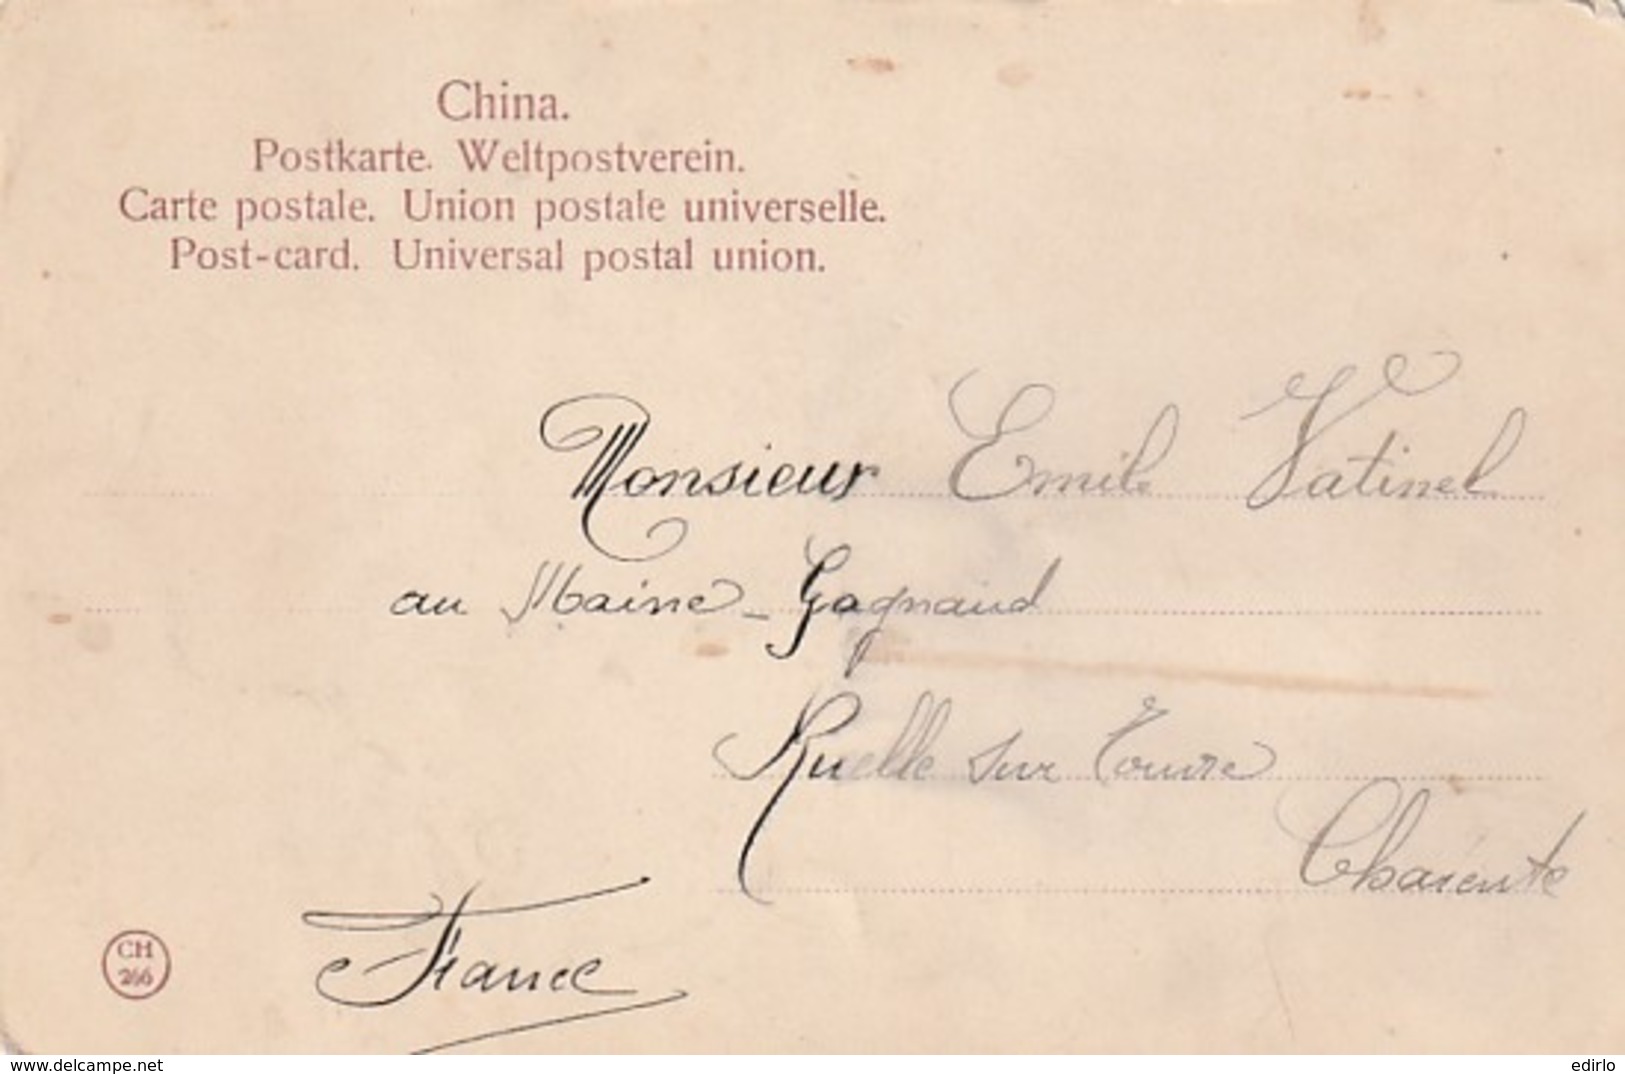 China.
Postkarte. Weltpostverein.
Carte postale. Union postale universelle.
Post-card. Universal postal union.
Monsieur Emile Vatinel
au Maine-Gagnaud
Ruelle sur Touvre
Charente
France
CH
266
www.delcampe.net
edirlo